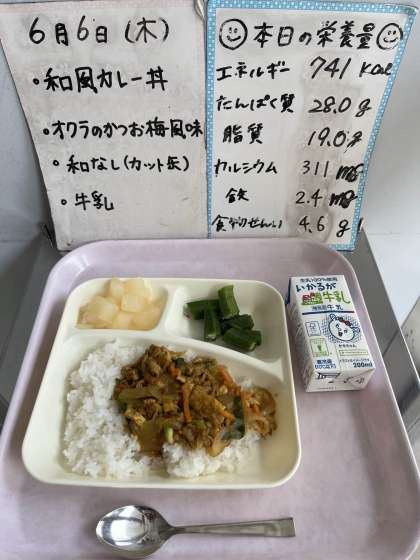 6月6日(木)
・和風カレー丼
・オクラのかつお梅風味
・和なし(カット缶)
・牛乳
本日の栄養量
エネルギー 741 kcal
たんぱく質 28.0 g
脂質 19.0 g
カルシウム 311 mg
鉄 2.4 mg
食物せんい 4.6 g
生乳100%使用
いかるが
牛乳
200ml